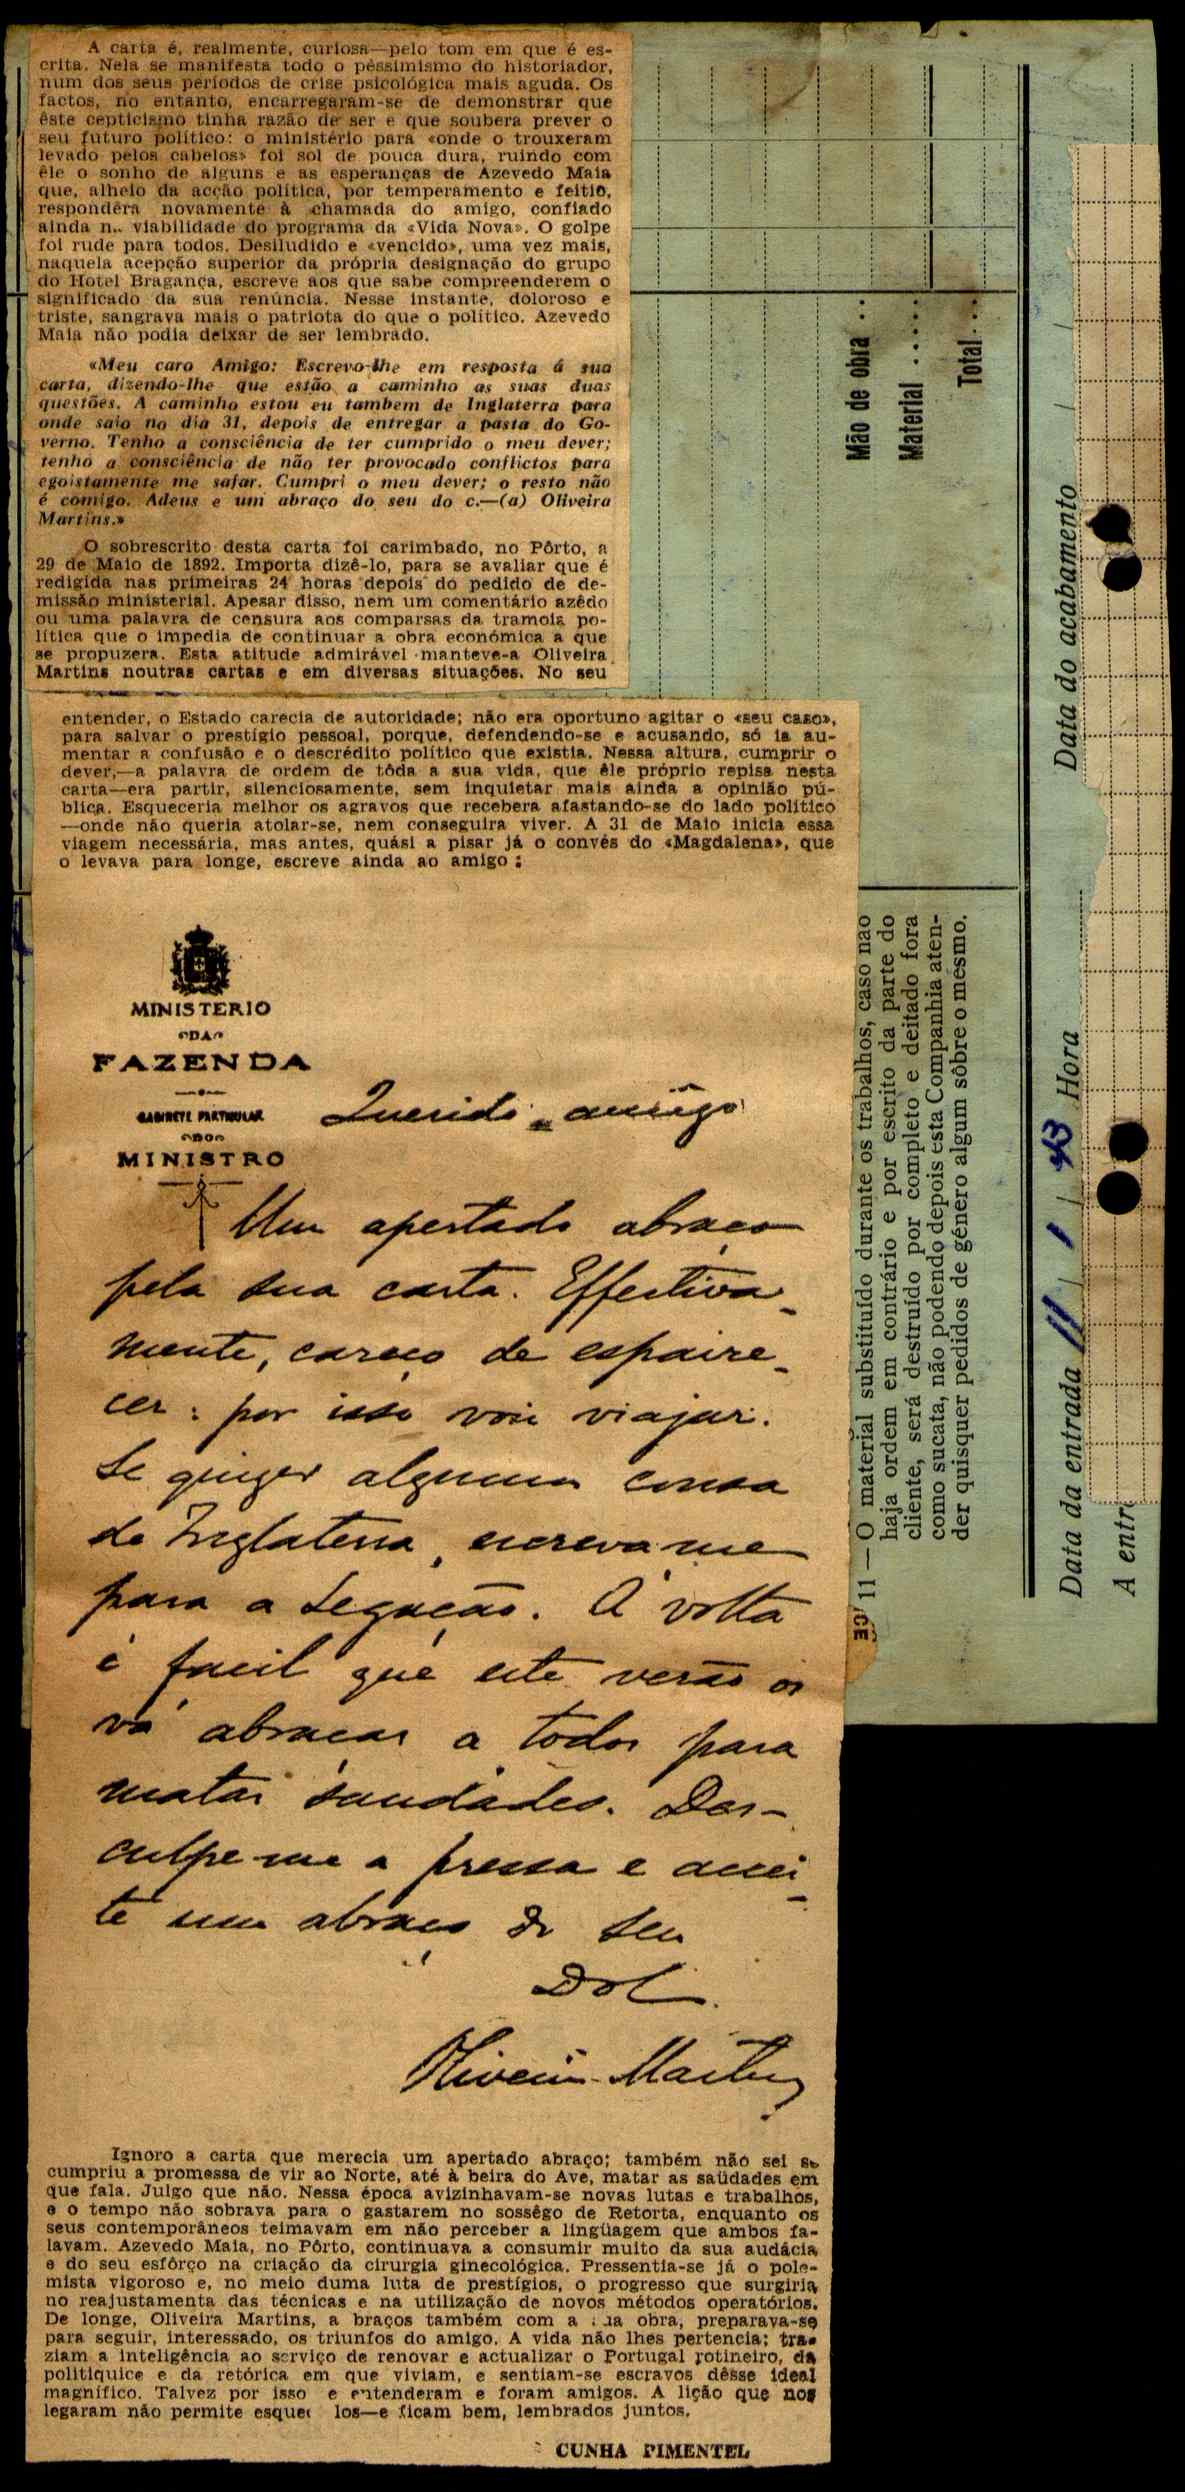 A carta é, realmente, curiosa—pelo tom em que é es-
crita. Nela se manifesta todo o pèssimismo do historiador,
num dos seus períodos de crise psicológica mais aguda. Os
factos, no entanto, encarregaram-se de demonstrar que
êste cepticismo tinha razão de ser e que soubera prever o
seu futuro político: o ministério para «onde o trouxeram
levado pelos cabelos» foi sol de pouca dura, ruindo com
êle o sonho de alguns e as esperanças de Azevedo Maia
que, alheio da acção política, por temperamento e feitio,
respondêra novamente à chamada do amigo, confiado
ainda n viabilidade do programa da «Vida Nova». O golpe
foi rude para todos. Desiludido e «vencido», uma vez mais,
naquela acepção superior da própria designação do grupo
do Hotel Bragança, escreve aos que sabe compreenderem o
significado da sua renúncia. Nesse instante, doloroso e
triste, sangrava mais o patriota do que o político. Azevedo
Maia não podia deixar de ser lembrado.
«Meu caro Amigo: Escrevo-lhe em resposta á sua
carta, dizendo-lhe que estão a caminho as suas duas
questões. A caminho estou eu tambem de Inglaterra para
onde saio no dia 31, depois de entregar a pasta do Go-
verno. Tenho a consciência de ter cumprido o meu dever;
tenho a consciência de não ter provocado conflictos para
egoistamente me safar. Cumpri o meu dever; o resto não
é comigo. Adeus e um abraço do seu do c.—(a) Oliveira
Martins.»
O sobrescrito desta carta foi carimbado, no Pôrto, a
29 de Maio de 1892. Importa dizê-lo, para se avaliar que é
redigida nas primeiras 24 horas depois do pedido de de-
missão ministerial. Apesar disso, nem um comentário azêdo
ou uma palavra de censura aos comparsas da tramoia po-
lítica que o impedia de continuar a obra económica a que
se propuzera. Esta atitude admirável manteve-a Oliveira
Martins noutras cartas e em diversas situações. No seu
entender, o Estado carecia de autoridade; não era oportuno agitar o «seu caso»,
para salvar o prestígio pessoal, porque, defendendo-se e acusando, só ia au-
mentar a confusão e o descrédito político que existia. Nessa altura, cumprir o
dever,—a palavra de ordem de tôda a sua vida, que êle próprio repisa nesta
carta—era partir, silenciosamente, sem inquietar mais ainda a opinião pú-
blica. Esqueceria melhor os agravos que recebera afastando-se do lado político
—onde não queria atolar-se, nem conseguira viver. A 31 de Maio inicia essa
viagem necessária, mas antes, quási a pisar já o convés do «Magdalena», que
o levava para longe, escreve ainda ao amigo:
MINISTERIO
DA
FAZENDA
GABINETE PARTICULAR
DO
MINISTRO
Querido amigo
Um apertado abraço
pela sua carta. Effectiva-
mente, careço de espaire-
cer: por isso vou viajar.
Se quizer alguma cousa
de Inglaterra, escreva-me
para a Legação. Á volta
é facil que este verão os
vá abraçar a todos para
matar saudades. Des-
culpe-me a pressa e accei-
te um abraço do seu
Do C.
Oliveira Martins
Ignoro a carta que merecia um apertado abraço; também não sei se
cumpriu a promessa de vir ao Norte, até à beira do Ave, matar as saüdades em
que fala. Julgo que não. Nessa época avizinhavam-se novas lutas e trabalhos,
e o tempo não sobrava para o gastarem no sossêgo de Retorta, enquanto os
seus contemporâneos teimavam em não perceber a lingüagem que ambos fa-
lavam. Azevedo Maia, no Pôrto, continuava a consumir muito da sua audácia
e do seu esfôrço na criação da cirurgia ginecológica. Pressentia-se já o pole-
mista vigoroso e, no meio duma luta de prestígios, o progresso que surgiria
no reajustamento das técnicas e na utilização de novos métodos operatórios.
De longe, Oliveira Martins, a braços também com a sua obra, preparava-se
para seguir, interessado, os triunfos do amigo. A vida não lhes pertencia; tra-
ziam a inteligência ao serviço de renovar e actualizar o Portugal rotineiro, da
politiquice e da retórica em que viviam, e sentiam-se escravos dêsse ideal
magnífico. Talvez por isso e entenderam e foram amigos. A lição que nos
legaram não permite esque los—e ficam bem, lembrados juntos.
CUNHA PIMENTEL
Mão de obra ..
Material .....
Total...
11 — O material substituído durante os trabalhos, caso não
haja ordem em contrário e por escrito da parte do
cliente, será destruído por completo e deitado fora
como sucata, não podendo depois esta Companhia aten-
der quisquer pedidos de género algum sôbre o mesmo.
Data da entrada 11 / 1 / 43 Hora
Data do acabamento / /
A entr